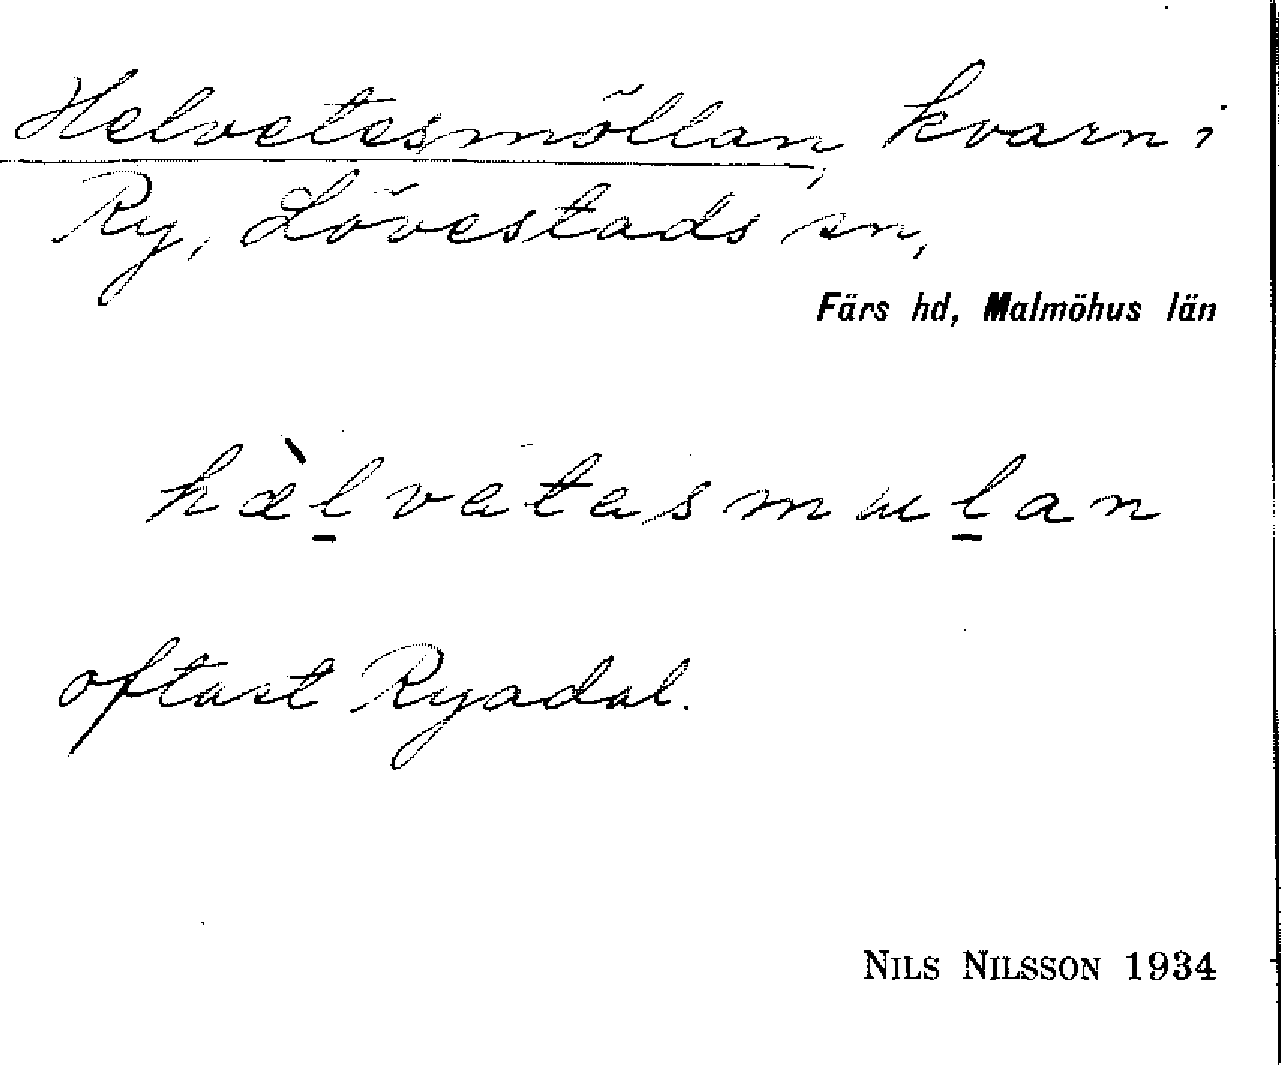 Helvetesmöllan, kvarn i
Ry, Lövestads sn,
Färs hd, Malmöhus län
hæ̀l̲vetesmul̲an
oftast Ryadal.
NILS NILSSON 1934